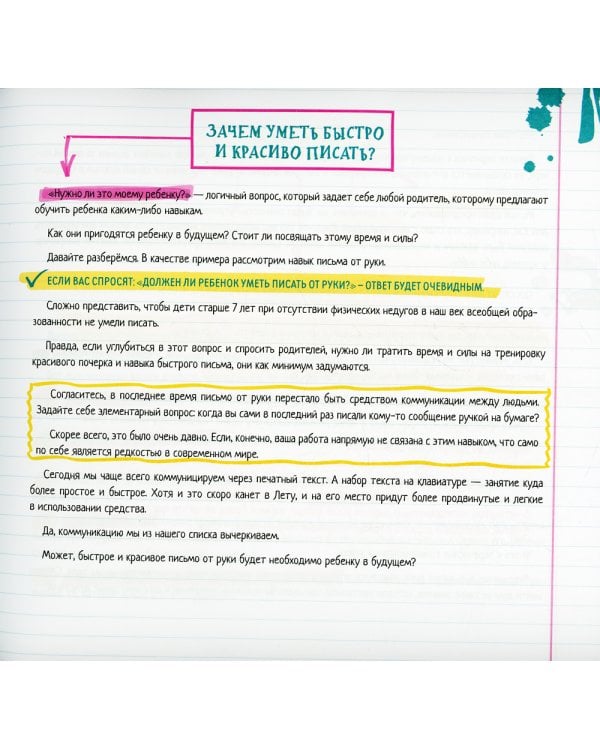 ЗАЧЕМ УМЕТЬ БЫСТРО
И КРАСИВО ПИСАТЬ?
«Нужно ли это моему ребенку?» — логичный вопрос, который задает себе любой родитель, которому предлагают
обучить ребенка каким-либо навыкам.
Как они пригодятся ребенку в будущем? Стоит ли посвящать этому время и силы?
Давайте разберёмся. В качестве примера рассмотрим навык письма от руки.
ЕСЛИ ВАС СПРОСЯТ: «ДОЛЖЕН ЛИ РЕБЕНОК УМЕТЬ ПИСАТЬ ОТ РУКИ?» – ОТВЕТ БУДЕТ ОЧЕВИДНЫМ.
Сложно представить, чтобы дети старше 7 лет при отсутствии физических недугов в наш век всеобщей обра-
зованности не умели писать.
Правда, если углубиться в этот вопрос и спросить родителей, нужно ли тратить время и силы на тренировку
красивого почерка и навыка быстрого письма, они как минимум задумаются.
Согласитесь, в последнее время письмо от руки перестало быть средством коммуникации между людьми.
Задайте себе элементарный вопрос: когда вы сами в последний раз писали кому-то сообщение ручкой на бумаге?
Скорее всего, это было очень давно. Если, конечно, ваша работа напрямую не связана с этим навыком, что само
по себе является редкостью в современном мире.
Сегодня мы чаще всего коммуницируем через печатный текст. А набор текста на клавиатуре — занятие куда
более простое и быстрое. Хотя и это скоро канет в Лету, и на его место придут более продвинутые и легкие
в использовании средства.
Да, коммуникацию мы из нашего списка вычеркиваем.
Может, быстрое и красивое письмо от руки будет необходимо ребенку в будущем?